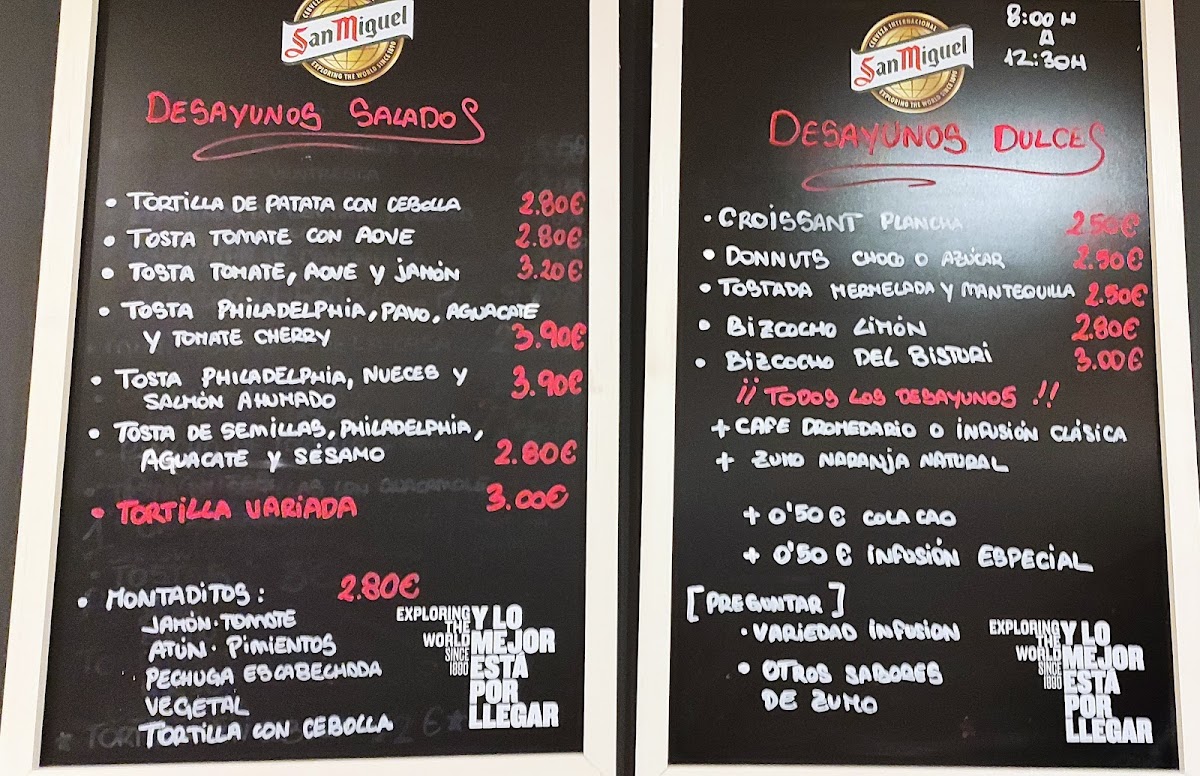 San Miguel
EXPLORING THE WORLD SINCE 1890
DESAYUNOS SALADOS
• TORTILLA DE PATATA CON CEBOLLA 2.80€
• TOSTA TOMATE CON AOVE 2.80€
• TOSTA TOMATE, AOVE Y JAMÓN 3.20€
• TOSTA PHILADELPHIA, PAVO, AGUACATE
Y TOMATE CHERRY 3.90€
• TOSTA PHILADELPHIA, NUECES Y
SALMÓN AHUMADO 3.90€
• TOSTA DE SEMILLAS, PHILADELPHIA,
AGUACATE Y SÉSAMO 2.80€
• TORTILLA VARIADA 3.00€
• MONTADITOS: 2.80€
JAMÓN·TOMATE
ATÚN·PIMIENTOS
PECHUGA ESCABECHADA
VEGETAL
TORTILLA CON CEBOLLA
EXPLORING
THE
WORLD
SINCE
1890
Y LO
MEJOR
ESTÁ
POR
LLEGAR
CERVEZA INTERNACIONAL
San Miguel
EXPLORING THE WORLD SINCE 1890
8:00 H
A
12:30H
DESAYUNOS DULCES
• CROISSANT PLANCHA 2.50€
• DONNUTS CHOCO O AZÚCAR 2.50€
• TOSTADA MERMELADA Y MANTEQUILLA 2.50€
• BIZCOCHO LIMÓN 2.80€
• BIZCOCHO DEL BISTURI 3.00€
¡¡ TODOS LOS DESAYUNOS !!
+ CAFE DROMEDARIO O INFUSIÓN CLÁSICA
+ ZUMO NARANJA NATURAL
+ 0'50 € COLA CAO
+ 0'50 € INFUSIÓN ESPECIAL
[PREGUNTAR]
• VARIEDAD INFUSION
• OTROS SABORES
DE ZUMO
EXPLORING
THE
WORLD
SINCE
1890
Y LO
MEJOR
ESTÁ
POR
LLEGAR